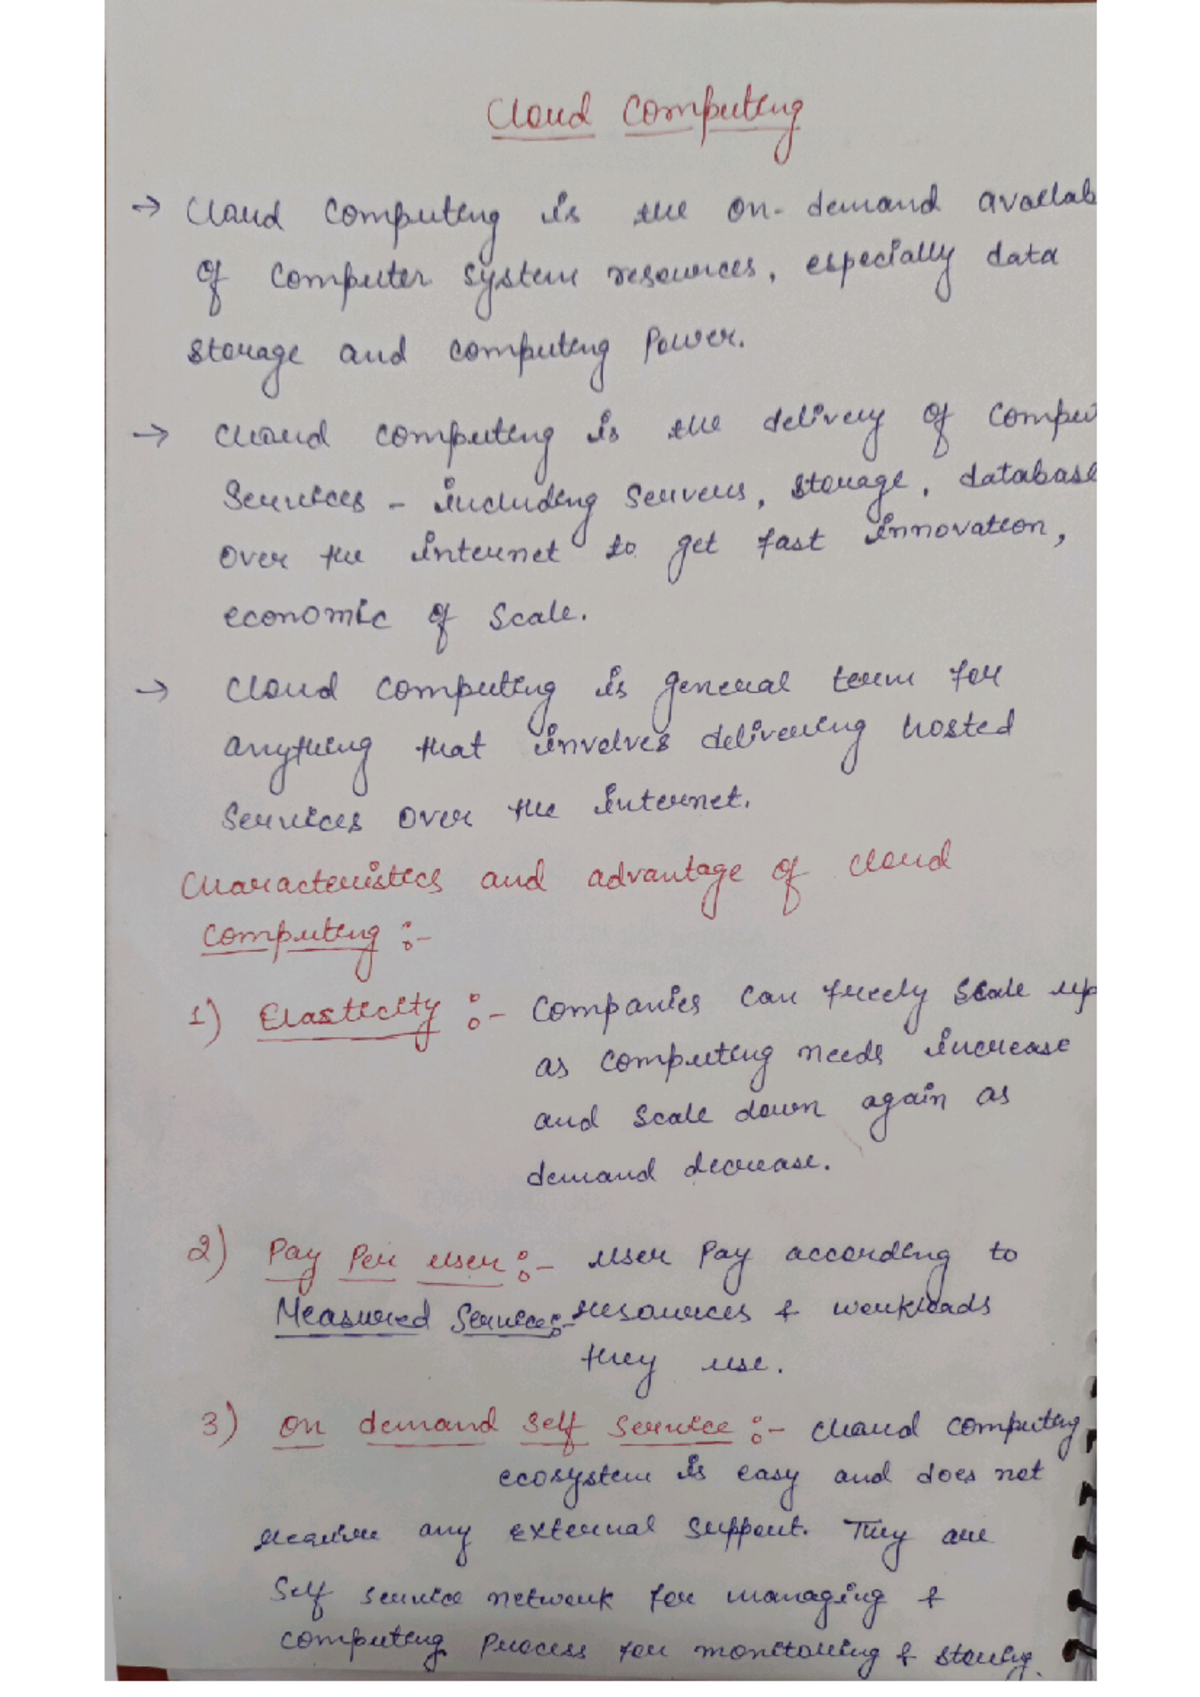 Cloud Computing
→ Cloud Computing is the on-demand availab
of Computer System resources, especially data
storage and computing Power.
→ Cloud Computing is the delivery of Compu
Services - including Servers, storage, database
over the internet to get fast innovation,
economic of Scale.
→ Cloud Computing is general term for
anything that involves delivering hosted
Services over the internet.
Characteristics and advantage of cloud
Computing :-
1) Elasticity :- Companies can freely Scale up
as computing needs increase
and scale down again as
demand decrease.
2) Pay Per user :- user Pay according to
Measured Service :- resources & workloads
they use.
3) On demand Self Service :- Cloud computing
ecosystem is easy and does not
require any external support. They are
Self service network for managing &
computing Process for monitoring & storing.